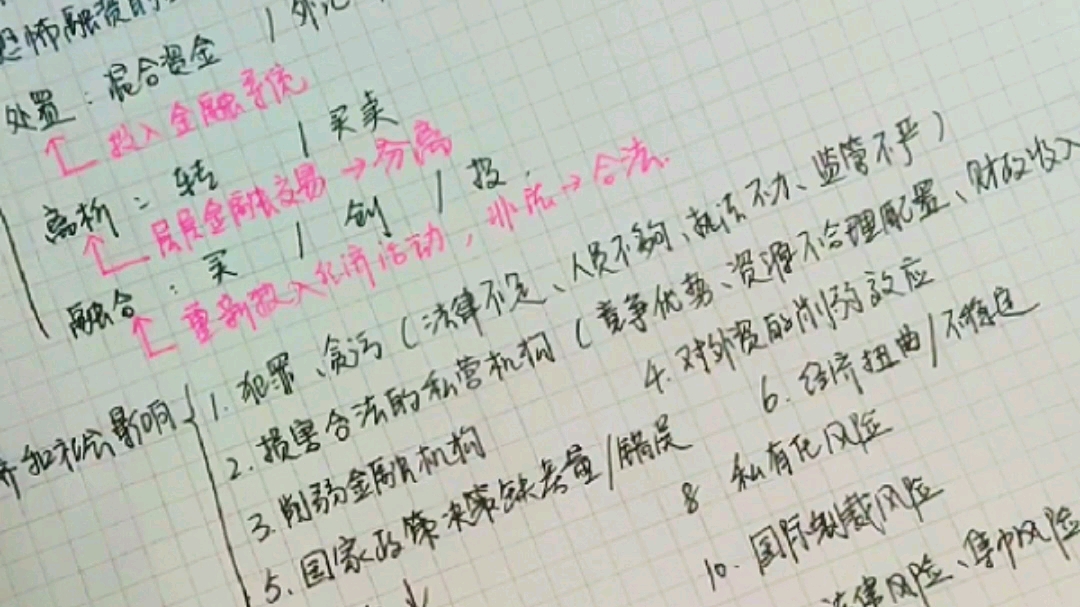 恐怖融资的
处置：混合资金 / 外汇
投入金融系统
离析：转 / 买卖
层层金融交易→分离
融合：买 / 创 / 投.
重新投入经济活动，非法→合法.
济和社会影响
1. 犯罪、贪污（法律不足、人员不够、执法不力、监管不严）
2. 损害合法的私营机构（竞争优势、资源不合理配置、财政收入
3. 削弱金融机构
4. 对外资的削弱效应
5. 国家政策决策缺失量/错误
6. 经济扭曲/不稳定
8 私有化风险
10. 国际制裁风险
法律风险、集中风险